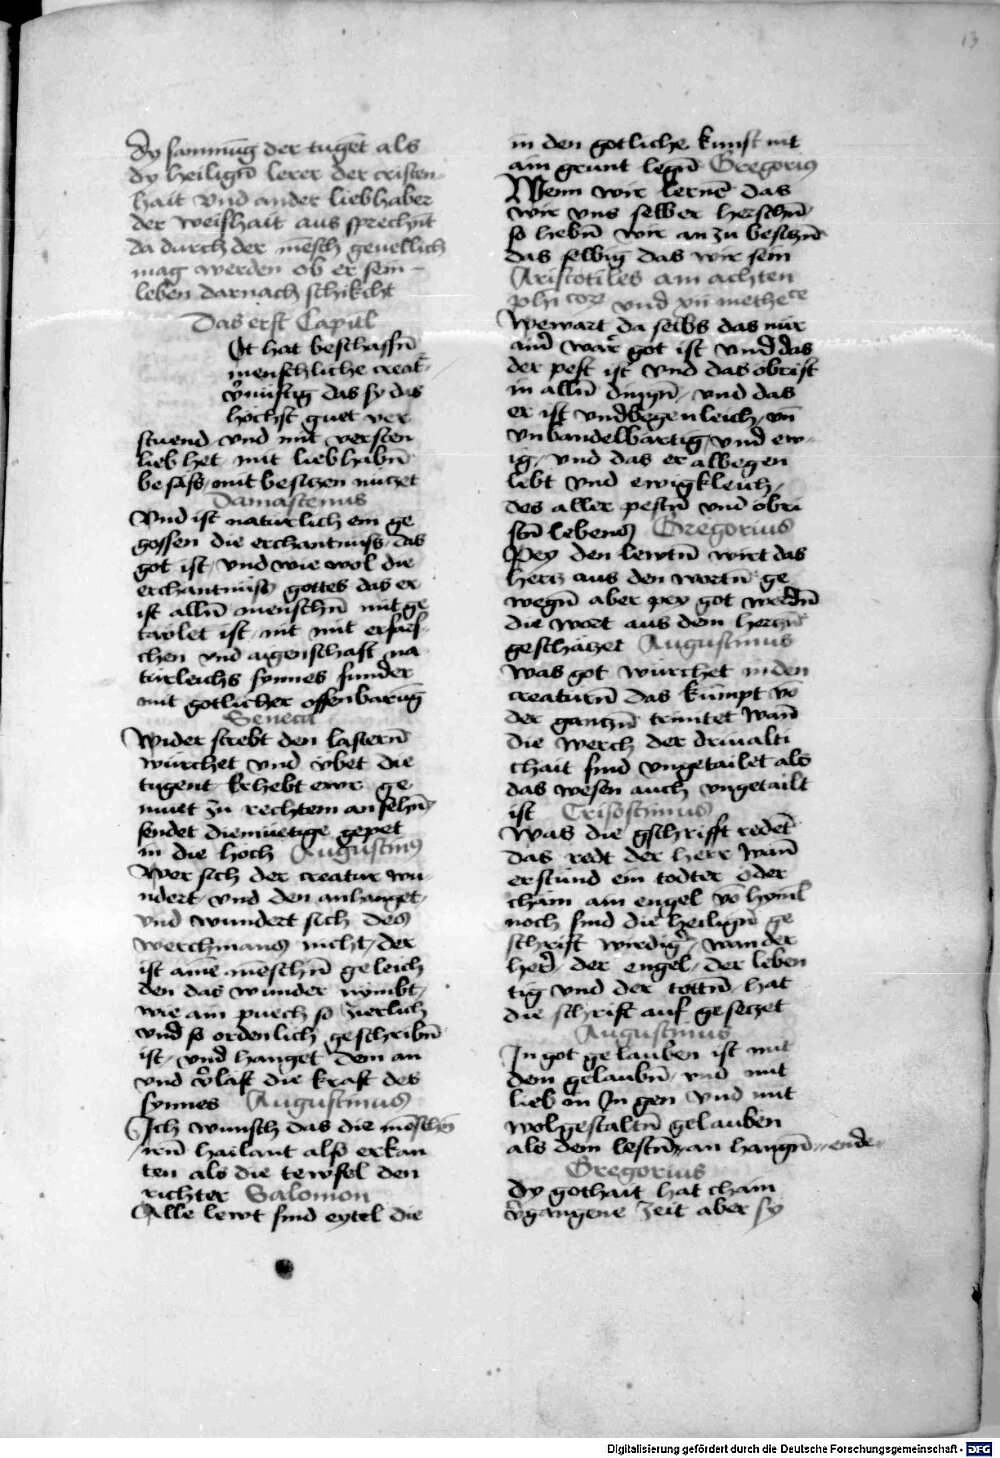 13
Dy sammūg der tugēt als
dy heiligñ lerer der cristen-
hait vnd ander liebhaber
der weishait aus sprechñt
da durch der mēsch geuellich
mag werden ob er sein
leben darnach schikcht
Das erst Capitl
Ot hat beschaffñ
menschliche creat-
v̄nuftig das sy das
hochst guet ver
stuend vnd mit versten
lieb het mit liebhabñ
besäss mit besiczen nüczet
Damascenus
Vnd ist naturlich ein ge
gossen die erchantnuss das
got ist vnd wie wol die
erchantnuss gottes das er
ist allñ menschñ mit ge
taylet ist nit mit ersüe-
chen vnd aigenschaft na
turleichs synnes sunder
mit gotlicher offenbarūg
Seneca
Wider strebt den lasterñ
würchet vnd v̈bet die
tugent Erhebt ewr ge
müet zu rechtem an sehñ
sendet diemüetige gepet
in die hoch Augustinus
Wer sich der creatur wu-
ndert vnd den anhanget
vnd wundert sich des
werchmans nicht der
ist aimē mēschñ geleich
den das wunder nymbt
wie ain puech so zierlich
vnd so ordenlich geschribñ
ist vnd hanget dem an
vnd v̄last die kraft des
synnes Augustinus
Ich wunsch das die mēschñ
irñ hailant also erkan
ten als die tewfel den
richter Salomon
Alle lewt sind eytel die
in den gotliche kunst nit
ain grunt legñ Gregorius
Wenn wir lernē das
wir vns selber herschñ
so hebñ wir an zu besiczñ
das selbig das wir sein
Aristotiles am achten
phicoꝝ vnd xii methece
Bewart da selbs das nur
ain war got ist vnd das
der pest ist vnd das obrist
in allñ dingñ vnd das
er ist vnd begenleich vñ
vnbandelbartig vnd ew-
ig vnd das er albegen
lebt vnd ewigkleich
des aller pestñ vnd obri
stñ lebens Gregorius
Pey den lewtñ wirt das
hercz aus den wortñ ge
wegñ aber pey got werdñ
die wort aus dem herczñ
geschäczet Augustinus
Was got würchet in den
creaturñ das kumpt vō
der ganczñ trinitet wañ
die werch der driualti
chait sind vngetailet als
das wesen auch vngetailt
ist Crisostimus
Was die gschrifft redet
das redt der herr wañ
erstünd ein todter oder
chäm ain engel vō hyml
noch sind die heiligñ ge
schrift wirdig̃ wan der
her̄ der engel der leben
tig vnd der tottñ hat
die schrift auf gesetzet
Augustinus
In got gelauben ist mit
dem gelaubñ vnd mit
lieb in In gen vnd mit
wolgestaltñ gelauben
als dem lestñ an hangñ ende
Gregorius
Dy gothait hat chain
v̄gangene zeit aber sy
Digitalisierung gefördert durch die Deutsche Forschungsgemeinschaft - DFG